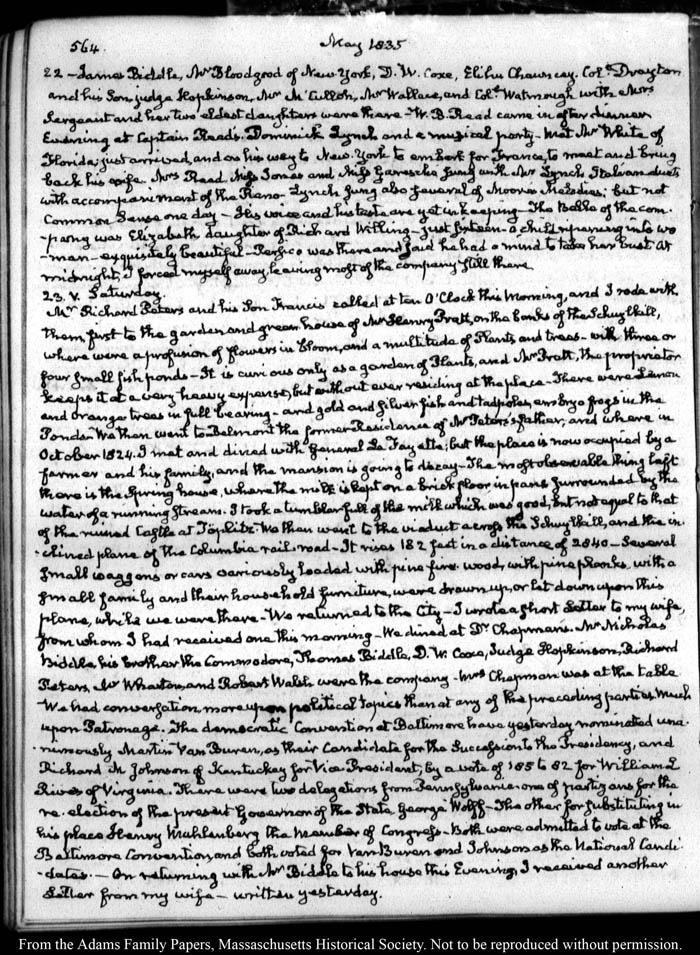 564.
May 1835
22 — James Biddle, Mr Bloodgood of New-York, D. W. Coxe, Elihu Chauncey. Coll Drayton
and his Son, judge Hopkinson, Mr McCulloh, Mr Wallace, and Coll Watmough with Mrs
Sergeant and her two eldest daughters were there — W. B. Read came in after dinner
Evening at Captain Read's. Dominick Lynch and a musical party — Met Mr White of
Florida; just arrived, and on his way to New-York to embark for France, to meet and bring
back his wife. Mrs Read, Miss Jones and Miss Garesche sung with Mr Lynch Italian duets
with accompaniment of the Piano — Lynch sung also several of Moore's Melodies; but not
Common Sense one day — His voice and his taste are yet in keeping — The Belle of the com-
-pany was Elizabeth daughter of Richard Willing — just fifteen — a child opening into wo
-man — exquisitely beautiful — Persico was there and said he had a mind to take her bust. At
midnight, I forced myself away, leaving most of the company still there
23. V. Saturday.
Mr Richard Peters and his Son Francis called at ten O'Clock this Morning, and I rode with
them, first to the garden and green house of Mr Henry Pratt, on the banks of the Schuylkill,
where were a profusion of flowers in bloom, and a multitude of Plants and trees — with three or
four small fish ponds — It is curious only as a garden of Plants, and Mr Pratt, the proprietor
keeps it at a very heavy expense, but without ever residing at the place — There were Lemon
and orange trees in full bearing — and gold and silver fish and tadpoles, embryo frogs in the
Ponds. We then went to Belmont the former Residence of Mr Peters's father; and where in
October 1824. I met and dined with General La Fayette; but the place is now occupied by a
farmer and his family, and the mansion is going to decay — The most observable thing left
there is the Spring house, where the milk is kept on a brick floor in pans surrounded by the
water of a running stream. I took a tumbler full of the milk which was good, but not equal to that
of the ruined Castle at Töplitz. We then went to the viaduct across the Schuylkill, and the in-
-clined plane of the Columbia rail-road — It rises 182 feet in a distance of 2840 — Several
small waggons or cars variously loaded with pine fire-wood, with pine planks, with a
small family and their household furniture, were drawn up, or let down upon this
plane, while we were there — We returned to the City — I wrote a short Letter to my wife,
from whom I had received one this morning — We dined at Dr Chapman's. Mr Nicholas
Biddle, his brother the Commodore, Thomas Biddle, D. W. Coxe, Judge Hopkinson, Richard
Peters, Mr Wharton, and Robert Walsh, were the company — Mrs Chapman was at the table
We had conversation, more upon political topics than at any of the preceding parties. Much
upon Patronage. The democratic Convention at Baltimore have yesterday nominated una-
-nimously Martin Van Buren, as their Candidate for the Succession to the Presidency, and
Richard M Johnson of Kentuckey for Vice-President, by a vote of 185 to 82 for William C
Rives of Virginia. There were two delegations from Pennsylvania — one of partizans for the
re-election of the present Governor of the State George Wolff — The other for substituting in
his place Henry Muhlenberg the member of Congress — Both were admitted to vote at the
Baltimore Convention, and both voted for Van Buren and Johnson as the National Candi-
-dates. — On returning with Mr Biddle to his house this Evening, I received another
Letter from my wife — written yesterday.
From the Adams Family Papers, Massachusetts Historical Society. Not to be reproduced without permission.